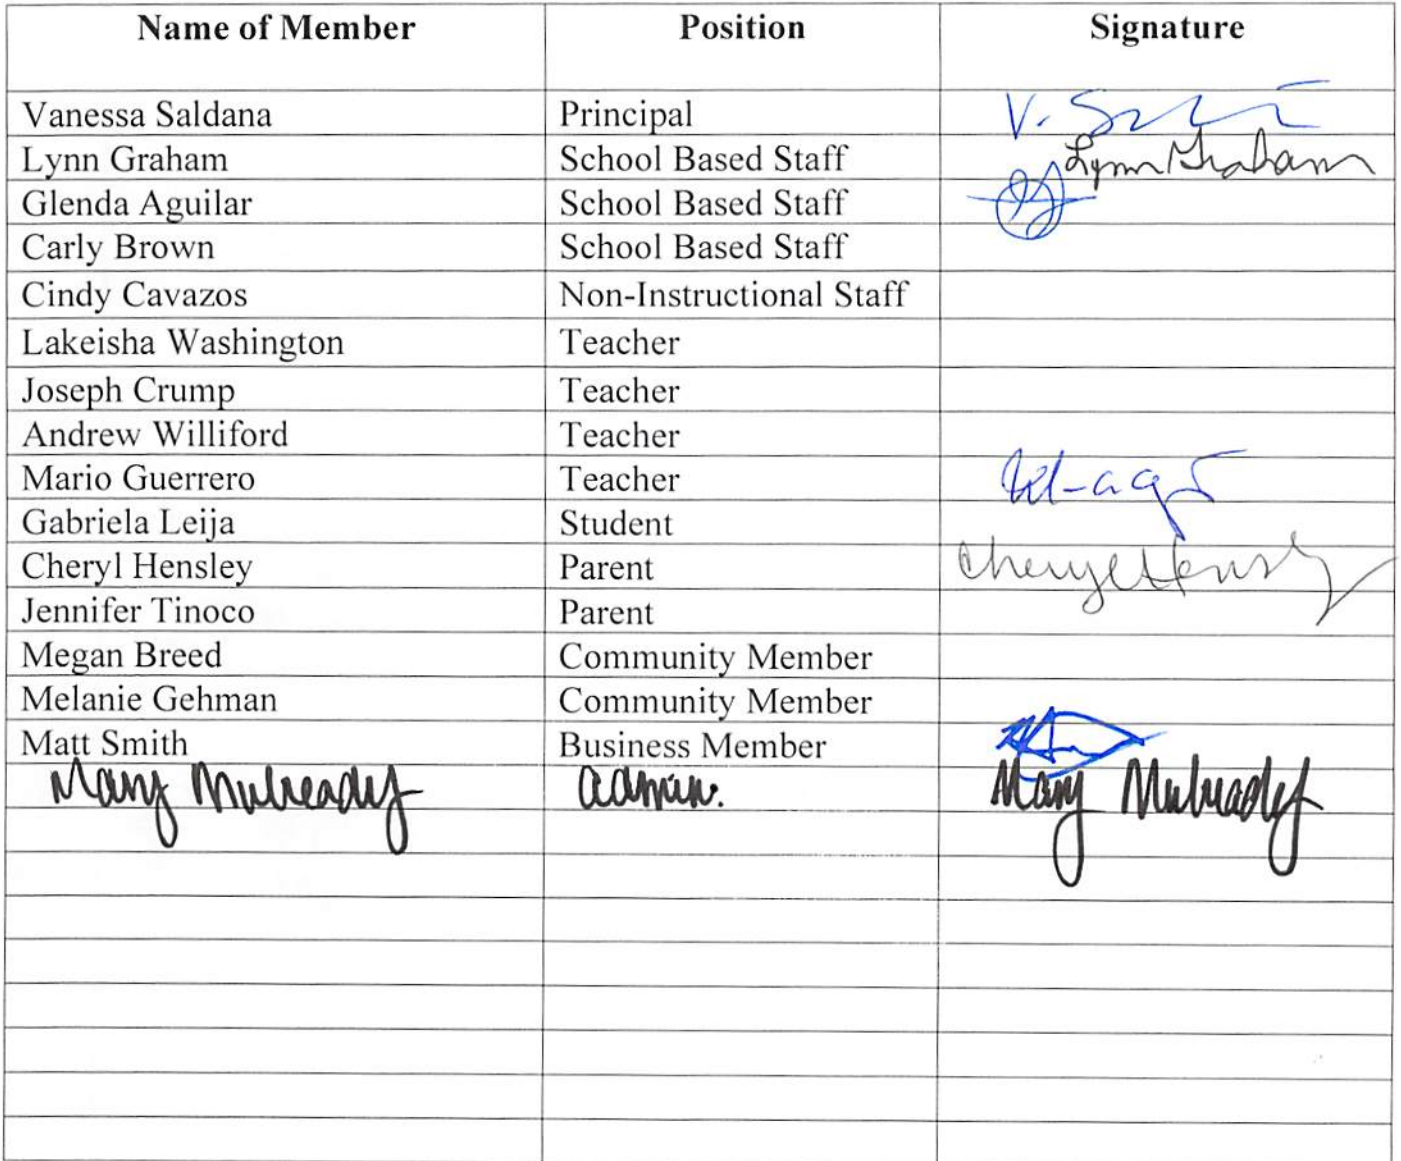 Name of Member Position Signature
Vanessa Saldana Principal V.
Lynn Graham School Based Staff Lynn Graham
Glenda Aguilar School Based Staff
Carly Brown School Based Staff
Cindy Cavazos Non-Instructional Staff
Lakeisha Washington Teacher
Joseph Crump Teacher
Andrew Williford Teacher
Mario Guerrero Teacher
Gabriela Leija Student
Cheryl Hensley Parent Cheryl Hensley
Jennifer Tinoco Parent
Megan Breed Community Member
Melanie Gehman Community Member
Matt Smith Business Member
Mary Mulready admin. Mary Mulready